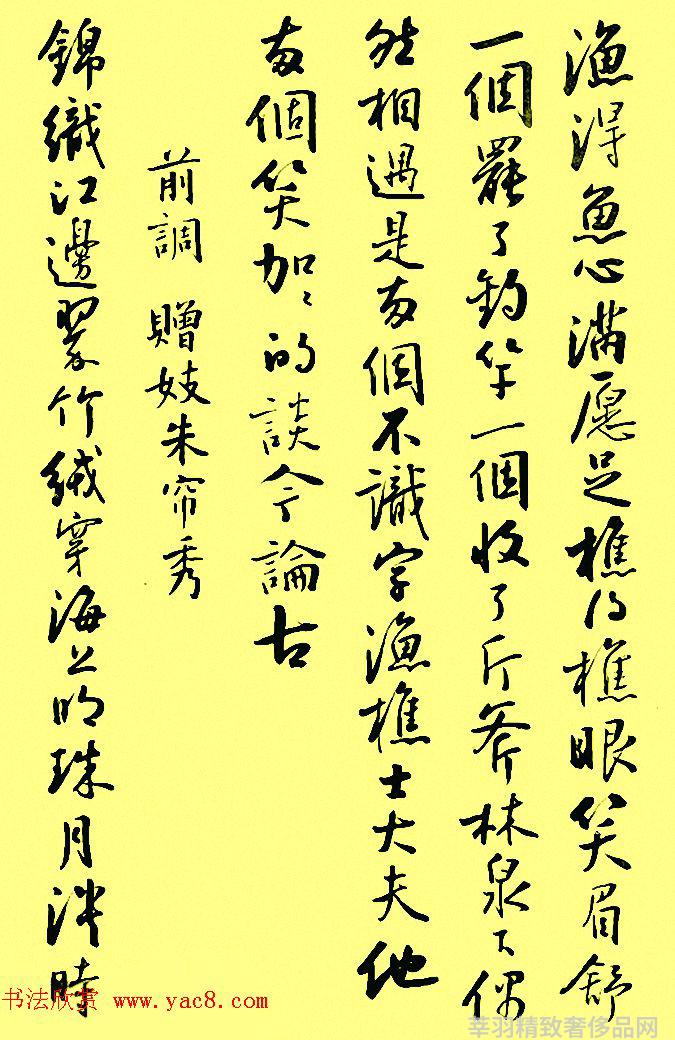 漁得魚心滿愿足樵得樵眼笑眉舒
一個罷了釣竿一個收了斤斧林泉下偶
然相遇是两個不識字漁樵士大夫他
两個笑加〻的談今論古
前調 贈妓朱帘秀
錦織江邊翠竹絨穿海上明珠月泮時
书法欣赏 www.yac8.com
莘羽精致奢侈品网